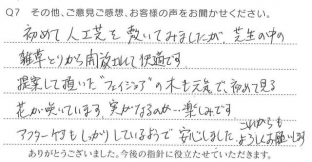 Q7 その他、ご意見ご感想、お客様の声をお聞かせください。
初めて人工芝を敷いてみましたが芝生の中の
雑草とりから開放されて快適です。
提案して頂いた"フェイジョア"の木も元気で、初めて見る
花が咲いています。実がなるのか…楽しみです
アフターケアもしっかりしているようで安心しました。これからも
よろしくお願いします
ありがとうございました。今後の指針に役立たせていただきます。